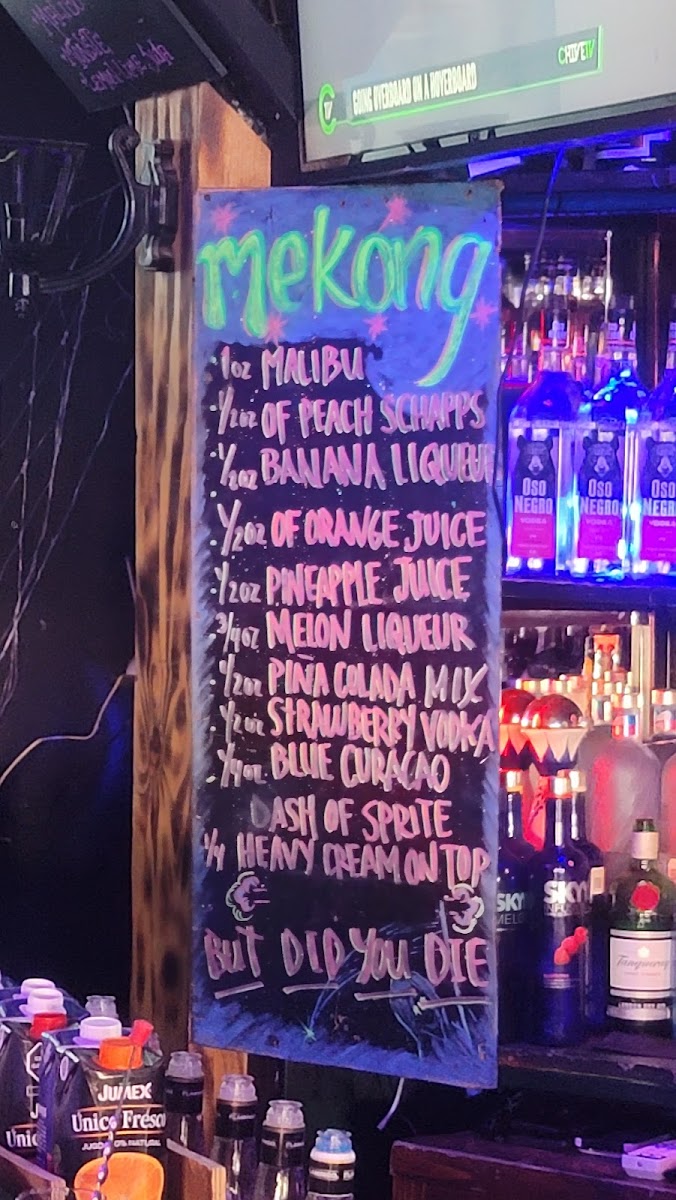 Lemon Lime Soda
GOING OVERBOARD ON A HOVERBOARD
CHIVETV
mekong
· 1oz MALIBU
· 1/2oz OF PEACH SCHAPPS
· 1/2oz BANANA LIQUEUR
· 1/2oz OF ORANGE JUICE
· 1/2oz PINEAPPLE JUICE
· 3/4oz MELON LIQUEUR
· 1/2oz PIÑA COLADA MIX
· 1/2oz STRAWBERRY VODKA
· 1/4oz BLUE CURAÇAO
DASH OF SPRITE
1/4 HEAVY CREAM ON TOP
BUT DID YOU DIE
OSO
NEGRO
VODKA
OSO
NEGRO
VODKA
OSO
NEGRO
VODKA
SKYY
SKYY
Tanqueray
JUMEX
Unico Fresco
Unic